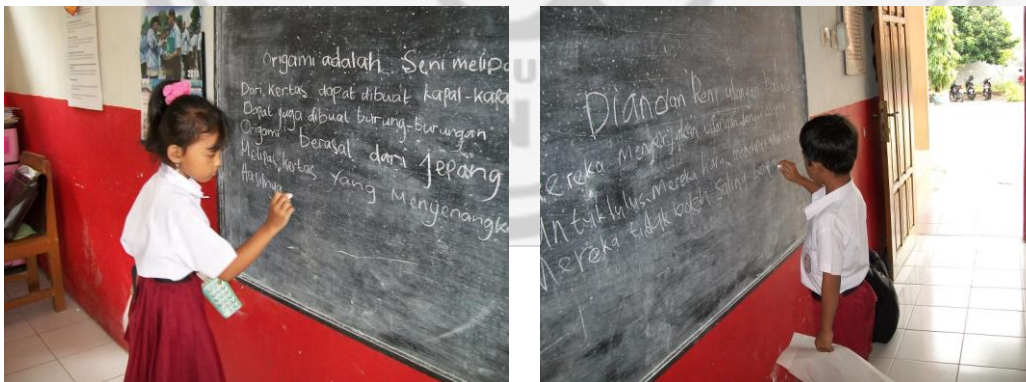 Origami adalah Seni melipa
Dari kertas dapat dibuat kapal-kapa
Dapat juga dibuat burung-burungan
Origami berasal dari Jepang
Melipat kertas yang Menyenangk
Hasilnya
Dian dan Reni ulangan
ereka mengerjakan ulangan dengan
untuk lulus mereka harus
Mereka tidak boleh saling